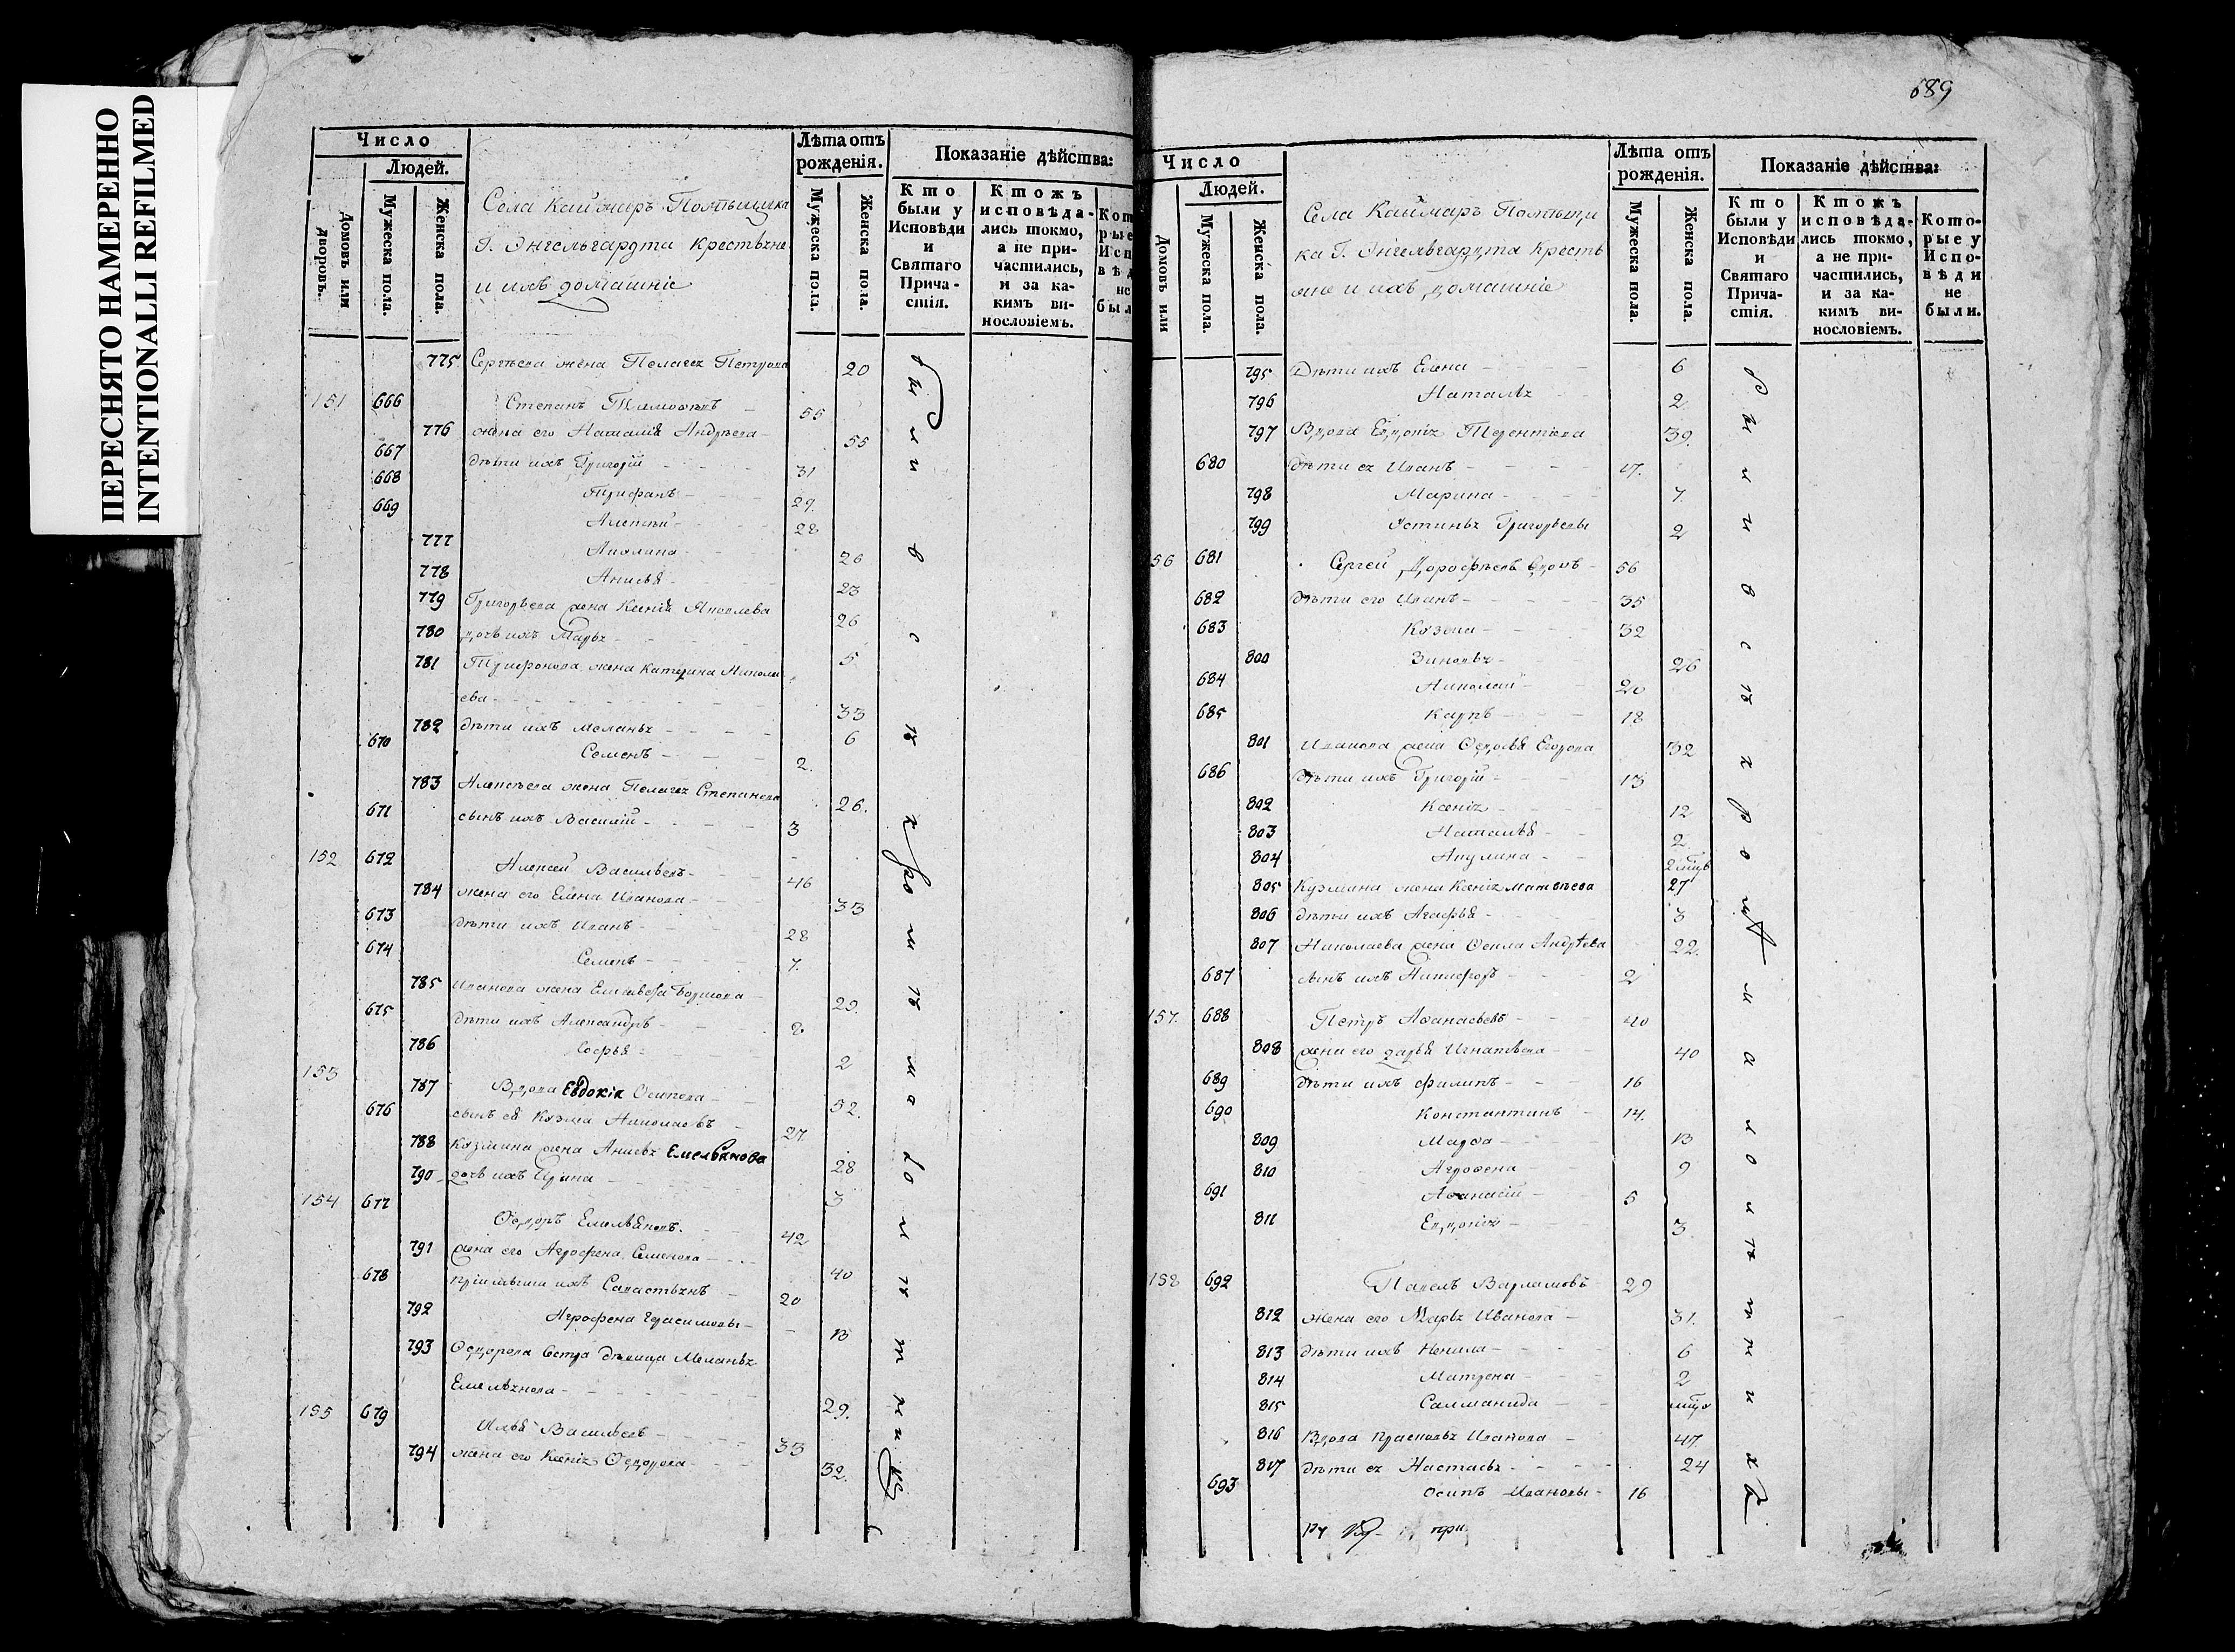 ПЕРЕСНЯТО НАМЕРЕННО
INTENTIONALLI REFILMED
Число
Людей.
Домовъ или дворовъ.
Мужеска пола.
Женска пола.
Села Каймаръ Помѣщика
Г. Энгельгардта Крестьяне
и ихъ домашніе
Лѣта отъ рожденія.
Мужеска пола.
Женска пола.
Показаніе дѣйства:
Кто были у Исповѣди и Святаго Причастія.
Ктожъ исповѣдались токмо, а не причастились, и за какимъ винословіемъ.
775 Сергѣева жена Пелагея Петрова 20
151 666 Степанъ Тимофѣевъ 55
776 жена его Наталія Андрѣева 55
667 дѣти ихъ Григорій 31
668 Трифанъ 29
669 Алексѣй 28
777 26
778 Анисья 23
779 Григорьева жена Ксенія Яковлева 26
780 дочь ихъ Марья 5
781 Трифонова жена Катерина Никола
ева 33
782 дѣти ихъ Меланья 6
670 Семенъ 2.
783 Алексѣева жена Пелагея Степанова 26.
671 сынъ ихъ Василій 3
152 672 Алексей Васильевъ 46
784 жена его Елена Иванова 33
673 дѣти ихъ Иванъ 28
674 Семенъ 7.
785 Иванова жена Елизавета 29.
675 дѣти ихъ Александръ 8
786 Софья 2
153 787 Вдова Евдокія Осипова 52.
676 сынъ ея Козма Николаевъ 27.
788 Козмина жена Анисья Емельянова 28
790 дочь ихъ Ирина 3
154 677 Ѳедоръ Емельяновъ. 42
791 жена его Агрофена Семенова 40
678 ихъ Савастьянъ 20
792 Агрофена Герасимовы 13
793 Ѳедорова сестра дѣвица Меланья
Емельянова 29.
155 679 Илья Васильевъ 33
794 жена его Ксенія Ѳедорова 32.
были в с ѣ
689
Число
Людей.
Домовъ или
Мужеска пола.
Женска пола.
Села Каймаръ Помѣщи
ка Г. Энгельгардта Кресть
яне и ихъ домашніе
Лѣта отъ рожденія.
Мужеска пола.
Женска пола.
Показаніе дѣйства:
Кто были у Исповѣди и Святаго Причастія.
Ктожъ исповѣдались токмо, а не причастились, и за какимъ винословіемъ.
Которые у Исповѣди не были.
795 Дѣти ихъ Елена 6
796 Наталья 2
797 Вдова Евдокія Терентіева 39.
680 дѣти ея Иванъ 17.
798 Марина 7.
799 Устинья Григорьевы 2
56 681 Сергей Дорофѣевъ вдовъ 56
682 дѣти его Иванъ 35
683 Козма 32
800 Зиновья 26
684 Николай 20
685 Карпъ 18
801 Иванова жена Ѳедосья Егорова 32
686 дѣти ихъ Григорій 13
802 Ксенія 12
803 Наталья 2
804 Акулина
805 Кузмина жена Ксенія Матвѣева 27
806 дѣти ихъ Агафья 3
807 Николаева жена Ѳекла Андрѣева 22.
687 сынъ ихъ Никифоръ 2
157. 688 Петръ Аѳанасьевъ 40
808 жена его Дарья Игнатьева 40
689 дѣти ихъ Филипъ 16
690 Константинъ 14.
809 Марѳа 13
810 Агрофена 9
691 Аѳанасій 5
811 Евдокія 3
158 692 Павелъ Варламовъ 29
812 жена его Марья Иванова 31.
813 дѣти ихъ Ненила 6
814 Матрена 2
815 Салманида
816 Вдова Прасковья Иванова 47.
817 дѣти ея Настасья 24
693 Осипъ Ивановы 16
были в с ѣ